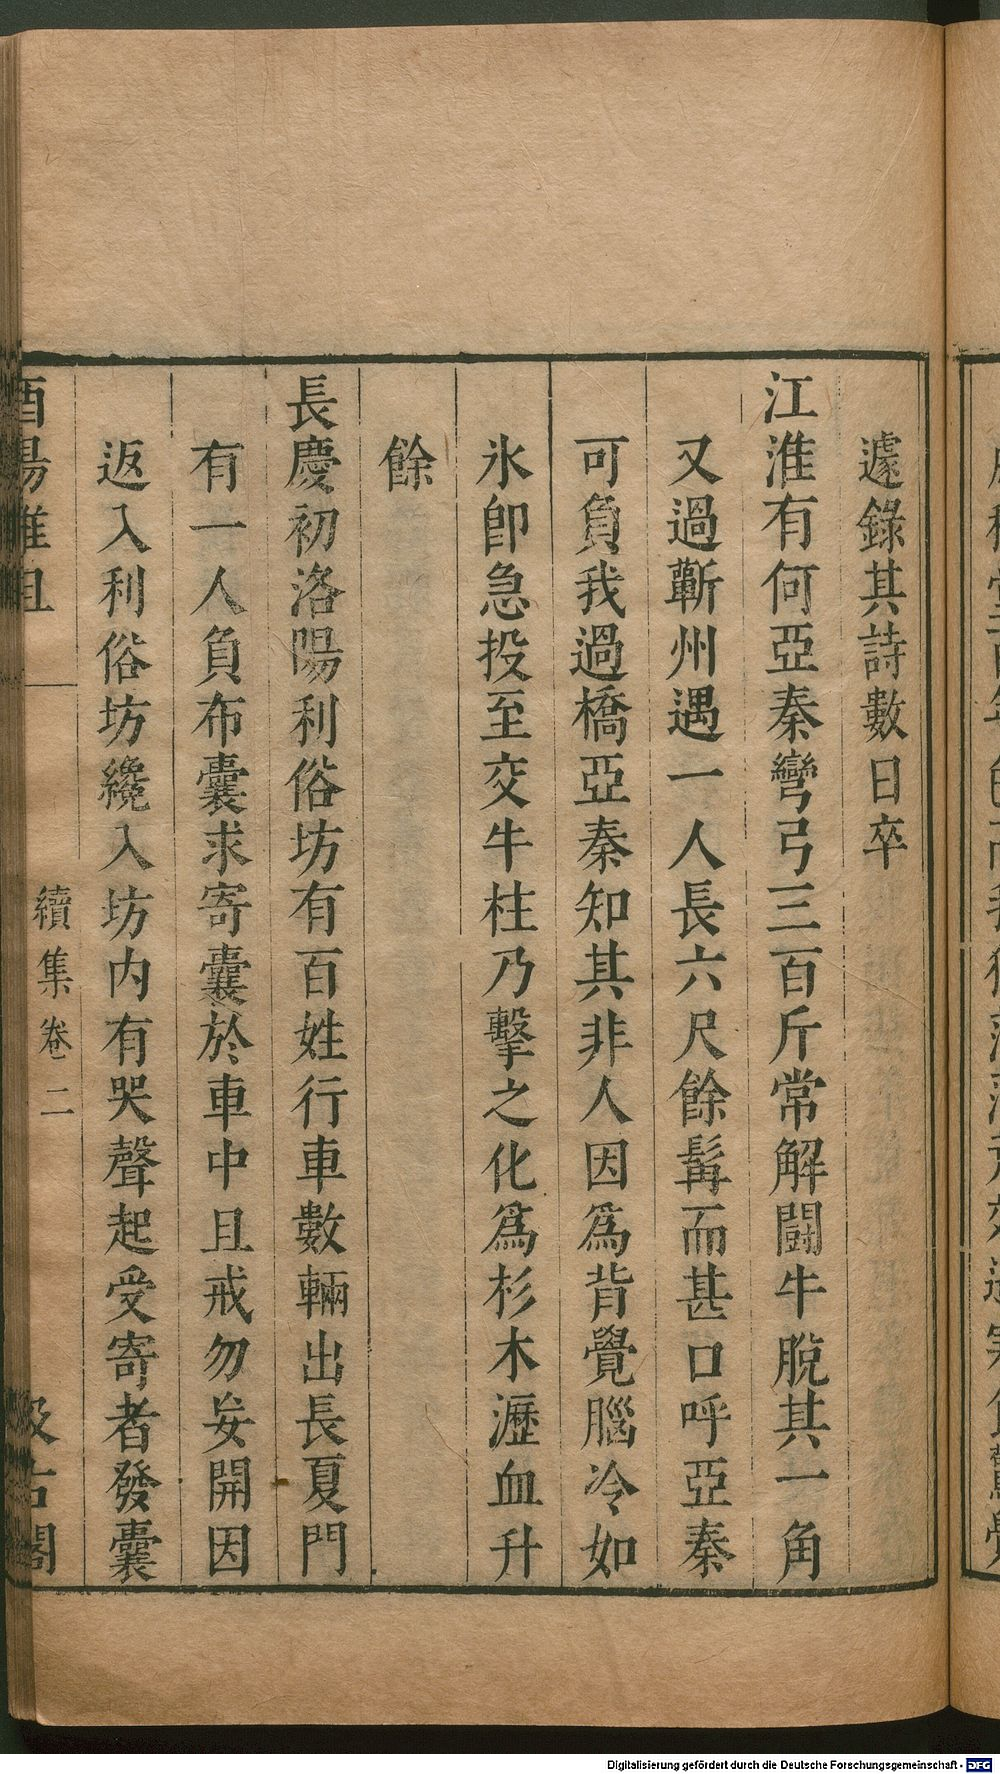 遽錄其詩數日卒
江淮有何亞秦彎弓三百斤常解闘牛脫其一角
又過蘄州遇一人長六尺餘髯而甚口呼亞秦
可負我過橋亞秦知其非人因爲背覺腦冷如
氷卽急投至交牛柱乃擊之化爲杉木瀝血升
餘
長慶初洛陽利俗坊有百姓行車數輛出長夏門
有一人負布囊求寄囊於車中且戒勿妄開因
返入利俗坊纔入坊內有哭聲起受寄者發囊
酉陽雜俎 續集卷二 汲古閣
Digitalisierung gefördert durch die Deutsche Forschungsgemeinschaft - DFG